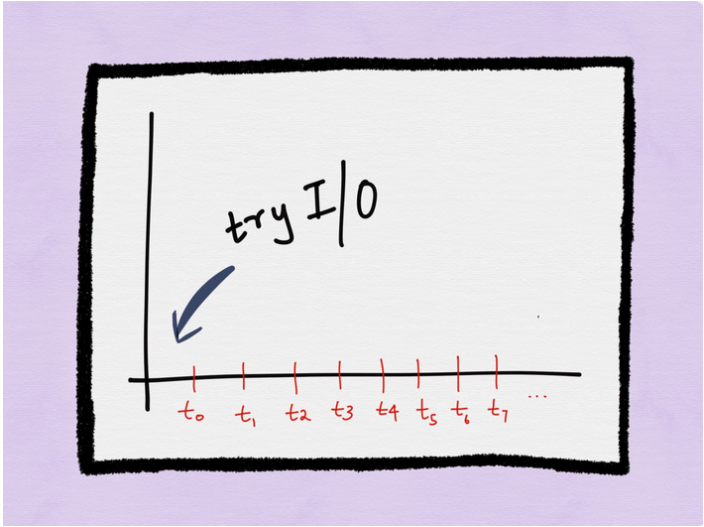 try I/O
t₀ t₁ t₂ t₃ t₄ t₅ t₆ t₇ ...